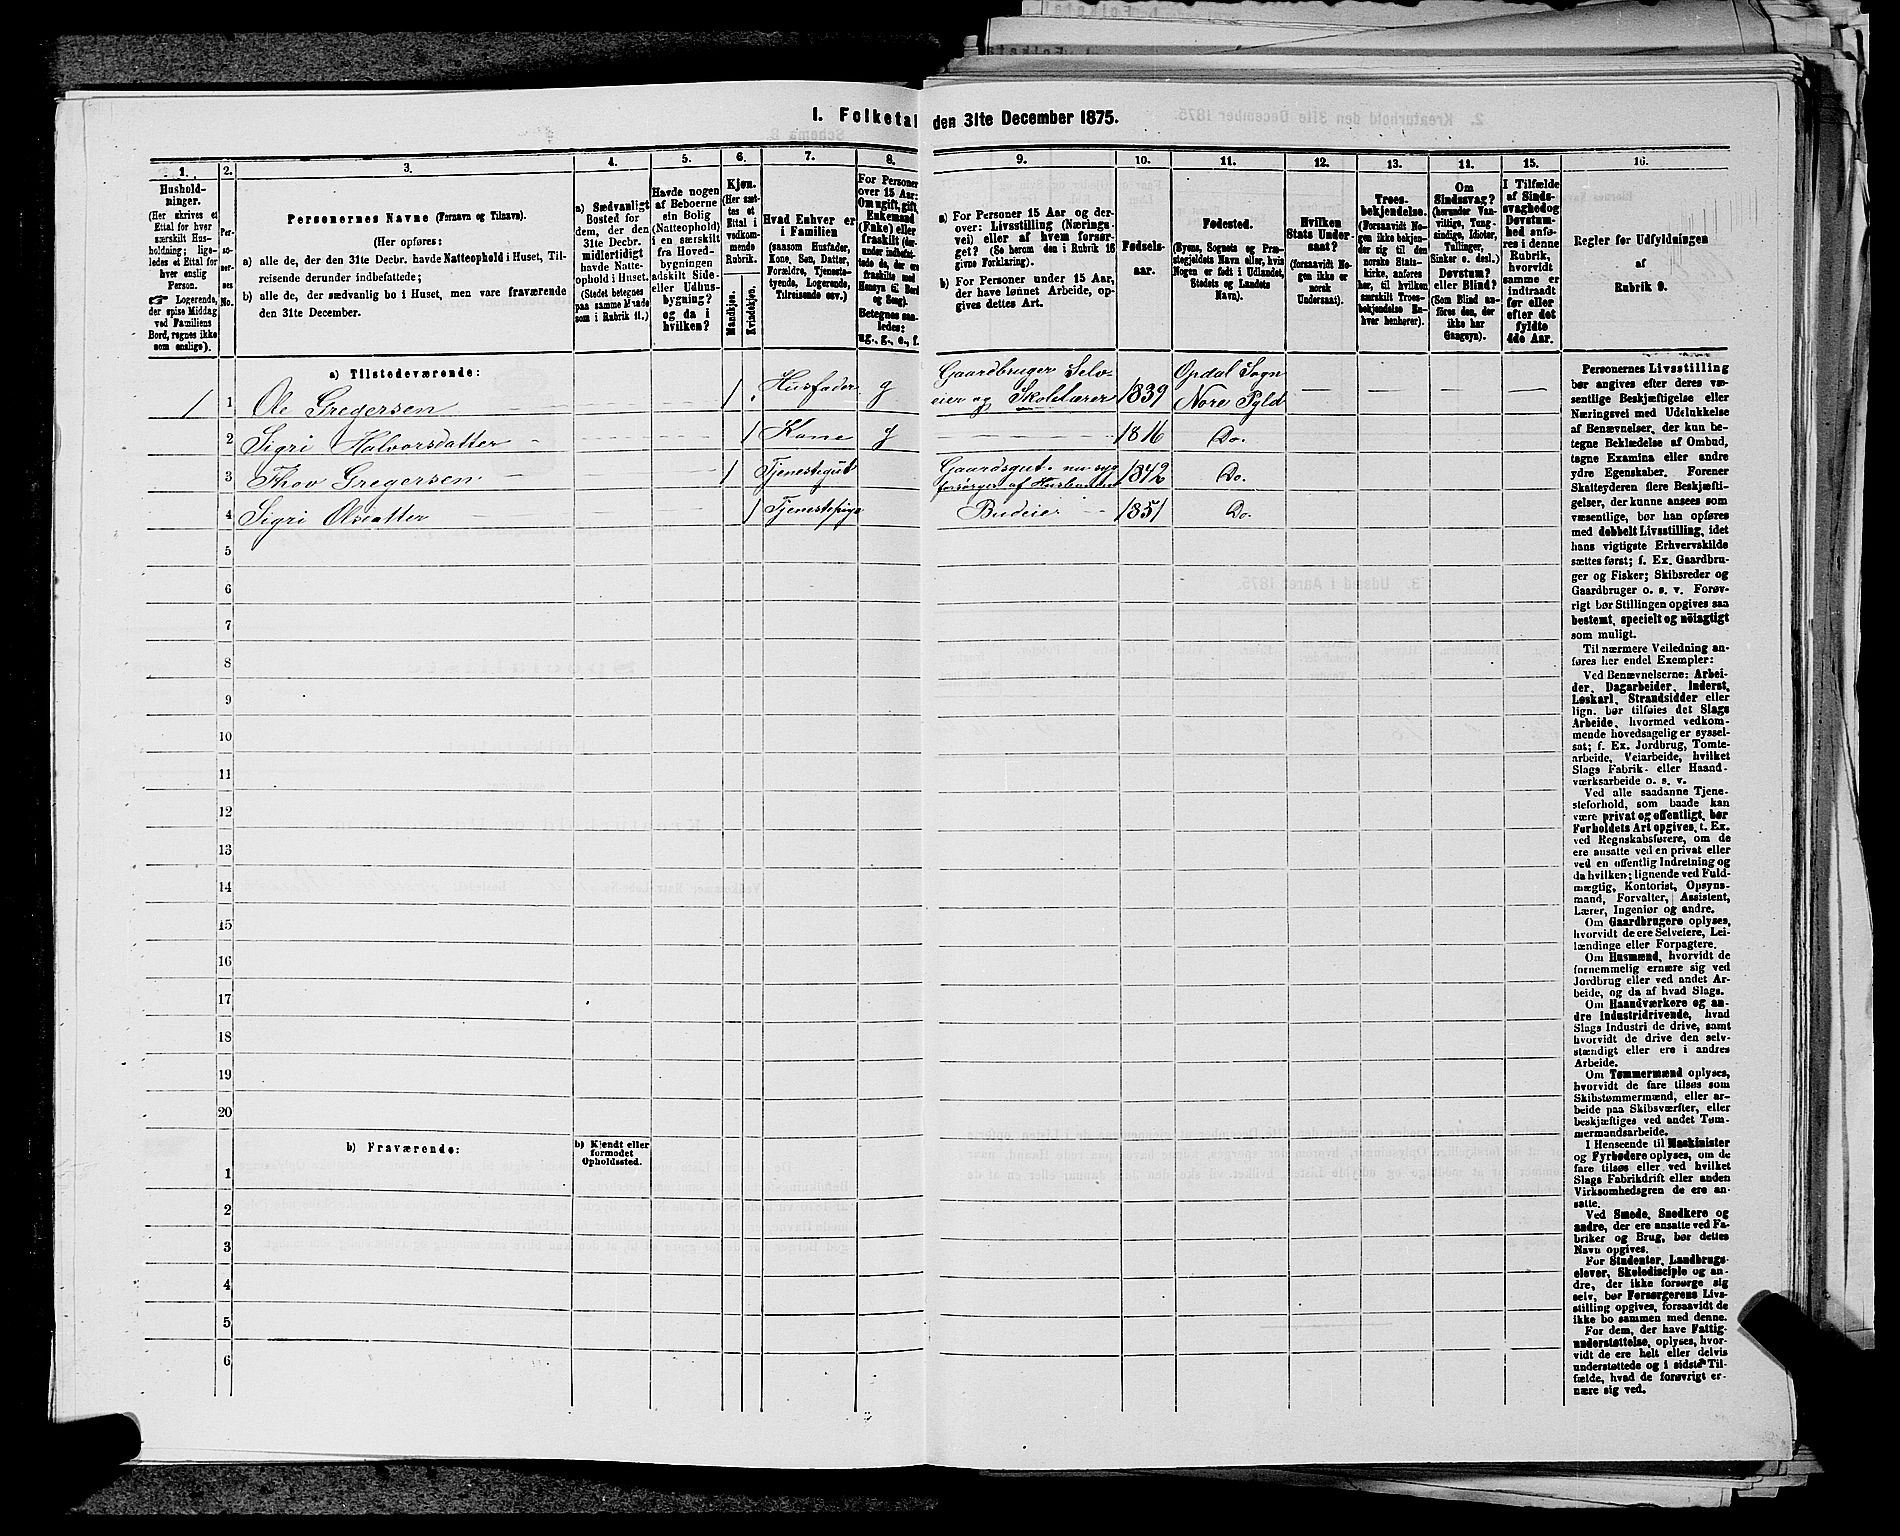 1. Folketal den 31te December 1875.
1. 2. 3. 4. 5. 6. 7. 8. 9. 10. 11. 12. 13. 14. 15. 16.
Hushold-
ninger.
(Her skrives et
Ettal for hver
særskilt Hus-
holdning; lige-
ledes et Ettal for
hver enslig
Person.
☞ Logerende,
der spise Middag
ved Familiens
Bord, regnes ikke
som enslige).
Per-
so-
ner-
nes
No.
Personernes Navne (Fornavn og Tilnavn).
(Her opføres:
a) alle de, der den 31te Decbr. havde Natteophold i Huset, Til-
reisende derunder indbefattede;
b) alle de, der sædvanlig bo i Huset, men vare fraværende
den 31te December.
a) Sædvanligt
Bosted for
dem, der den
31te Decbr.
midlertidigt
havde Natte-
ophold i Huset.
(Stedet betegnes
paa samme Maade
som i Rubrik 11.)
Havde nogen
af Beboerne
sin Bolig
(Natteophold)
i en særskilt
fra Hoved-
bygningen
adskilt Side-
eller Udhus-
bygning?
og da i
hvilken?
Kjøn.
(Her sæt-
tes et
Ettal i
vedkom-
mende
Rubrik.
Mandkjøn.
Kvindekjøn.
Hvad Enhver er
i Familien
(saasom Husfader,
Kone, Søn, Datter,
Forældre, Tjeneste-
tyende, Logerende,
Tilreisende osv.)
For Personer
over 15 Aar:
Om ugift, gift,
Enkemand
(Enke) eller
fraskilt
Betegnes saa-
ledes:
ug., g., e., f.
a) For Personer 15 Aar og der-
over: Livsstilling (Nærings-
vei) eller af hvem forsør-
get? (Se herom den i Rubrik 16
givne Forklaring).
b) For Personer under 15 Aar,
der have lønnet Arbeide, op-
gives dettes Art.
Fødsels-
aar.
Fødested.
(Byens, Sognets og Præ-
stegjeldets Navn eller, hvis
Nogen er født i Udlandet,
Stedets og Landets
Navn).
Hvilken
Stats Under-
saat?
(forsaavidt No-
gen ikke er
norsk
Undersaat).
Troes-
bekjendelse.
(Forsaavidt No-
gen ikke bekjen-
der sig til den
norske Stats-
kirke, anføres
her, til hvilken
særskilt Troes-
bekjendelse En-
hver henhører).
Om
Sindssvag?
(herunder Van-
vittige, Tung-
sindige, Idioter,
Tullinger,
Sinker o. desl.)
Døvstum?
eller Blind?
(Som Blind an-
føres den, der
ikke har
Gangsyn).
I Tilfælde
af Sinds-
svaghed og
Døvstum-
hed anføres
i denne
Rubrik,
hvorvidt
samme er
indtraadt
før eller
efter det
fyldte
4de Aar.
Regler for Udfyldningen
af
Rubrik 9.
a) Tilstedeværende:
1 1 Ole Gregersen 1 Husfader g Gaardbruger Selv-
eier og Skolelærer 1839 Opdal Sogn
Nore Pgld
2 Sigri Halvorsdatter 1 Kone g 1816 Do.
3 Thov Gregersen 1 Tjenestegut Gaardsgut. nu syg
forsørges af Husbonden 1842 Do.
4 Sigri Olsdatter 1 Tjenestepige Budeier 1851 Do.
5
6
7
8
9
10
11
12
13
14
15
16
17
18
19
20
b) Fraværende:
b) Kjendt eller
formodet
Opholdssted.
1
2
3
4
5
6
Personernes Livsstilling
bør angives efter deres væ-
sentlige Beskjæftigelse eller
Næringsvei med Udelukkelse
af Benævnelser, der kun be-
tegne Beklædelse af Ombud,
tagne Examina eller andre
ydre Egenskaber. Forener
Skatteyderen flere Beskjæfti-
gelser, der kunne ansees som
væsentlige, bør han opføres
med dobbelt Livsstilling, idet
hans vigtigste Erhvervskilde
sættes først; f. Ex. Gaardbru-
ger og Fisker; Skibsreder og
Gaardbruger o. s. v. Forøv-
rigt bør Stillingen opgives saa
bestemt, specielt og nöiagtigt
som muligt.
Til nærmere Veiledning an-
føres her endel Exempler:
Ved Benævnelserne: Arbei-
der, Dagarbeider, Inderst,
Løskarl, Strandsidder eller
lign. bør tilføies det Slags
Arbeide, hvormed vedkom-
mende hovedsagelig er syssel-
sat; f. Ex. Jordbrug, Tomte-
arbeide, Veiarbeide, hvilket
Slags Fabrik- eller Haand-
værksarbeide o. s. v.
Ved alle saadanne Tjene-
steforhold, som baade kan
være privat og offentligt, bør
Forholdets Art opgives, t. Ex.
ved Regnskabsførere, om de
ere ansatte ved en privat eller
ved en offentlig Indretning og
da hvilken; lignende ved Fuld-
mægtig, Kontorist, Opsyns-
mand, Forvalter, Assistent,
Lærer, Ingeniør og andre.
Om Gaardbrugere oplyses,
hvorvidt de ere Selveiere, Lei-
lændinge eller Forpagtere.
Om Husmænd, hvorvidt de
fornemmelig ernære sig ved
Jordbrug eller ved andet Ar-
beide, og da af hvad Slags.
Om Haandværkere og an-
dre industridrivende, hvad
Slags Industri de drive, samt
hvorvidt de drive den selv-
stændigt eller ere i andres
Arbeide.
Om Tømmermænd oplyses,
hvorvidt de fare tilsøs som
Skibstømmermænd, eller ar-
beide paa Skibsværfter, eller
beskjæftiges ved andet Tøm-
mermandsarbeide.
I Henseende til Maskinister
og Fyrbødere oplyses, om de
fare tilsøs eller ved hvilket
Slags Fabrikdrift eller anden
Virksomhedsgren de ere an-
satte.
Ved Smede, Snedkere og
andre, der ere ansatte ved Fa-
briker og Brug, bør dettes
Navn opgives.
For Studenter, Landbrugs-
elever, Skoledisciple og an-
dre, der ikke forsørge sig
selv, bør Forsørgerens Livs-
stilling opgives, forsaavidt de
ikke bo sammen med denne.
For dem, der have Fattig-
understøttelse, oplyses, hvor-
vidt de ere helt eller delvis
understøttede og i sidste Til-
fælde, hvad de forøvrigt er-
nære sig ved.